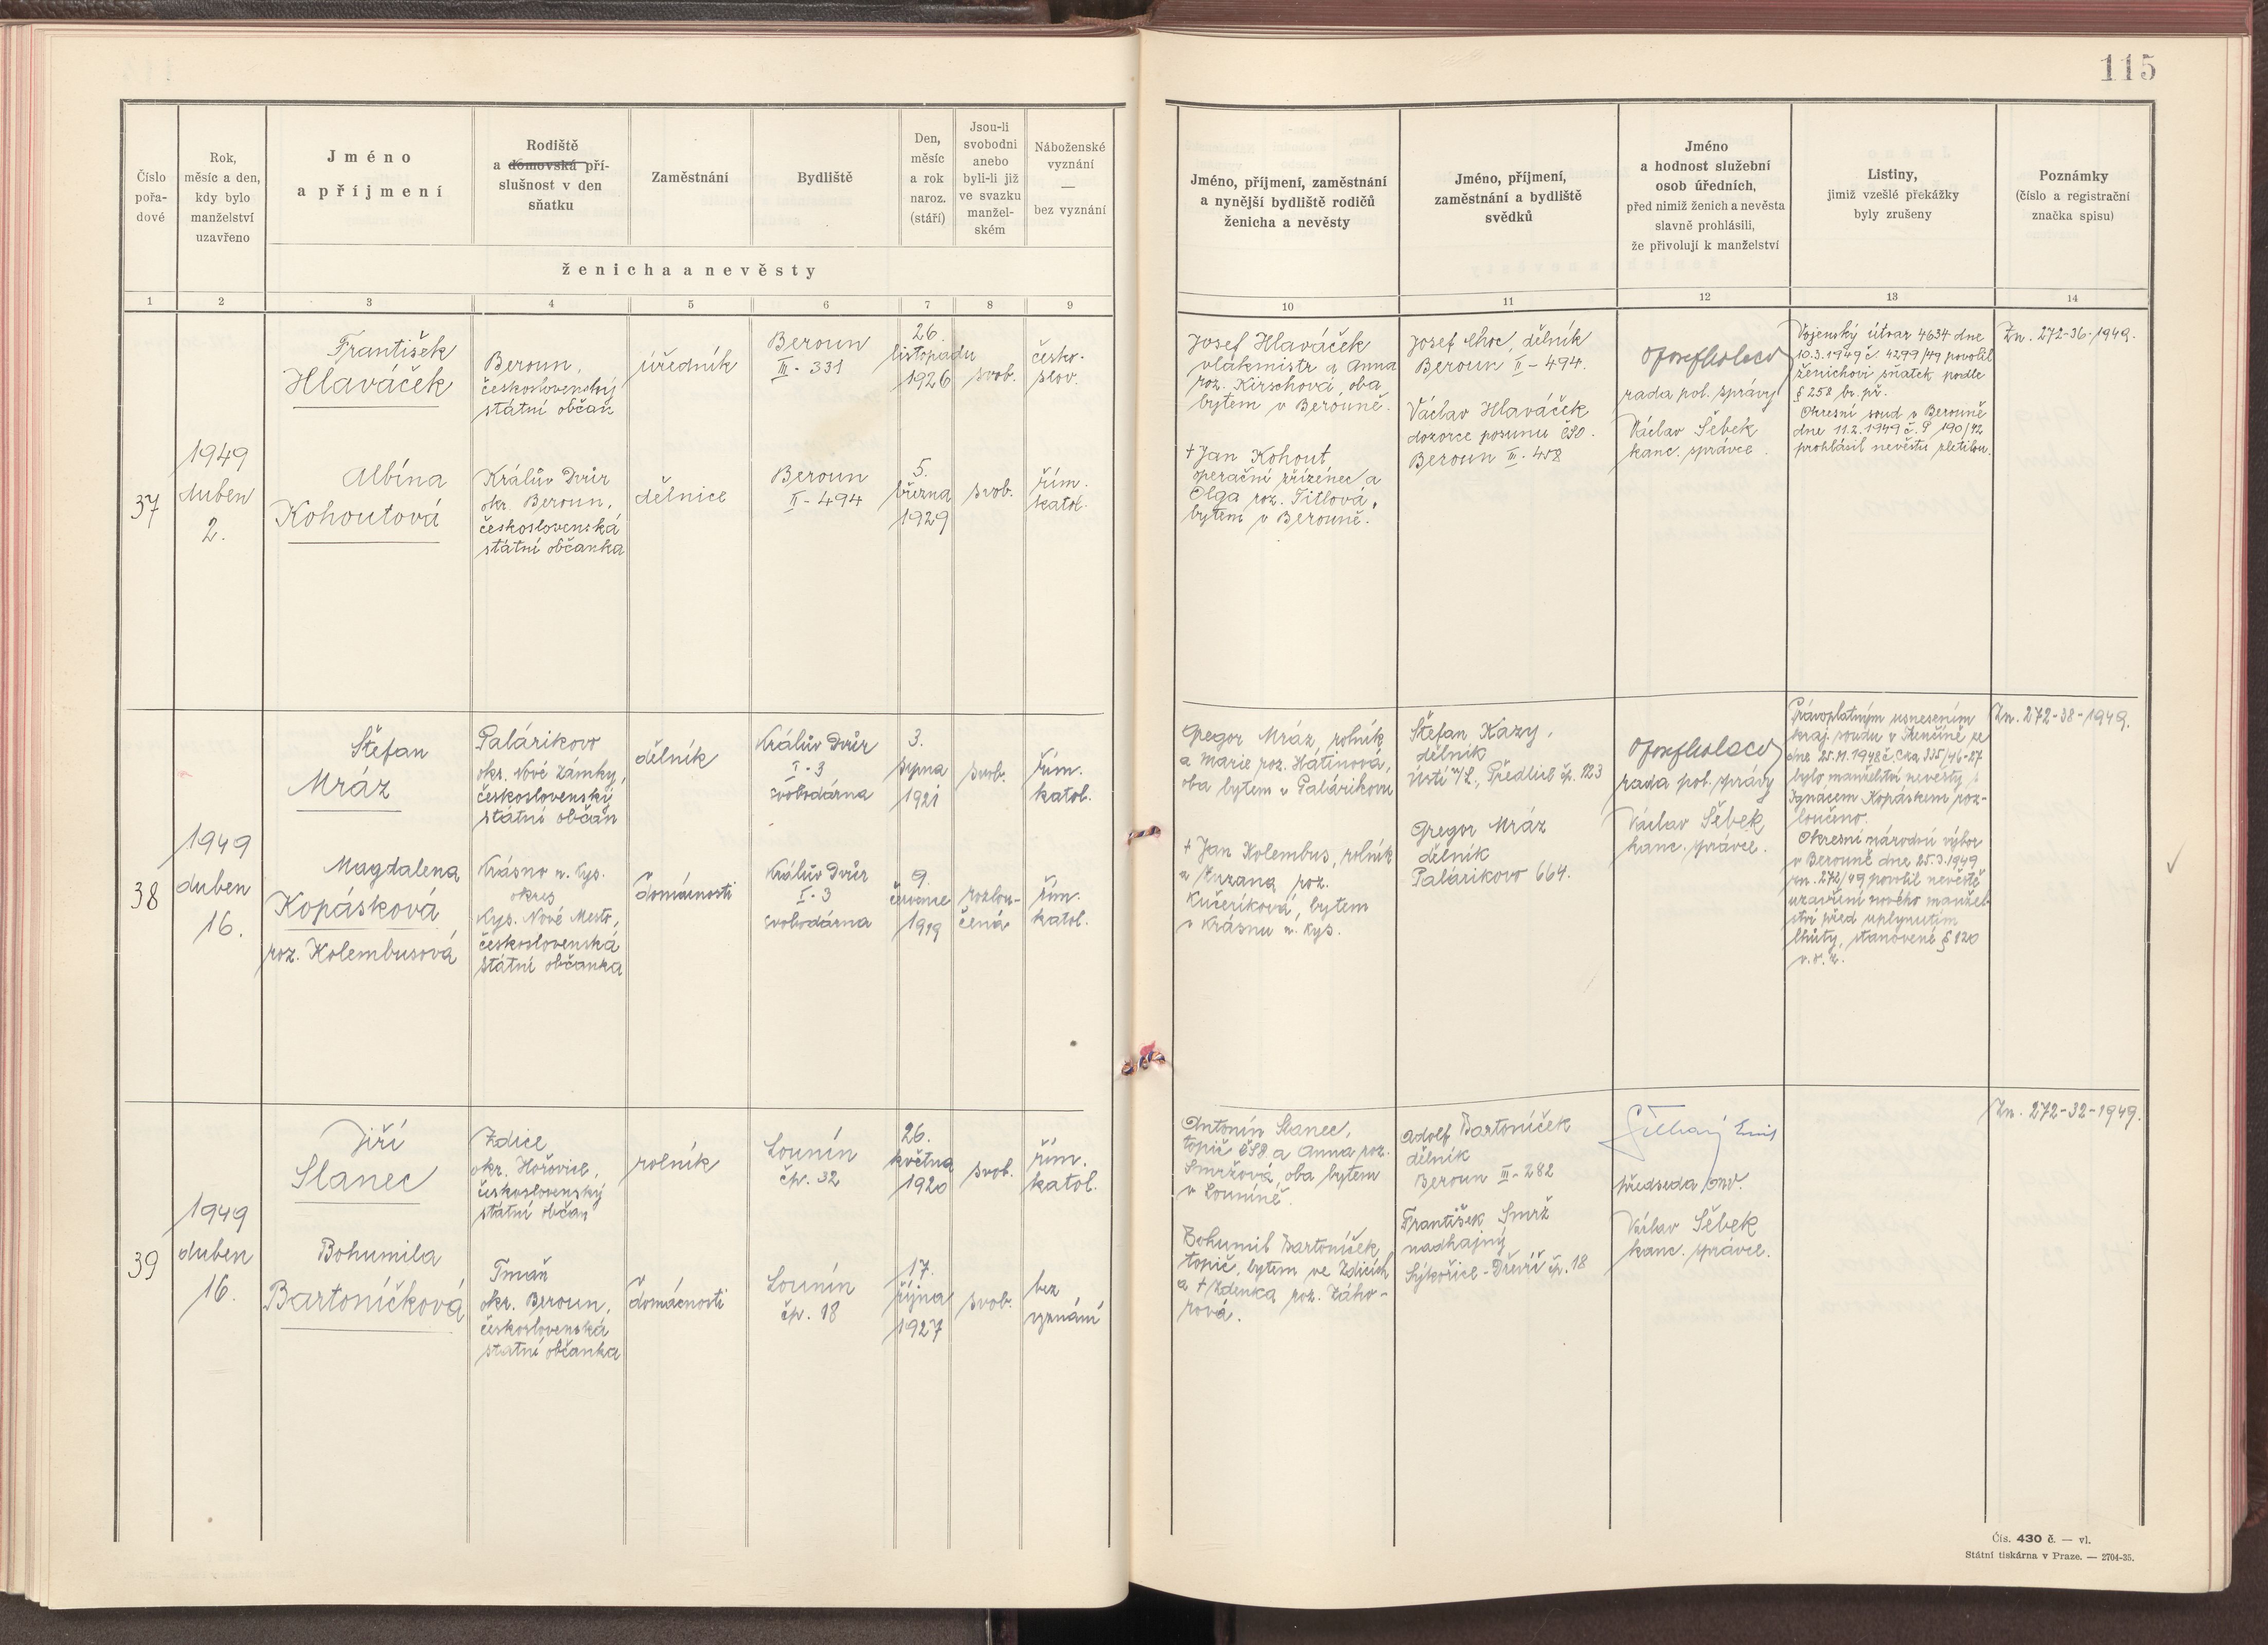 115
Číslo
pořa-
dové
Rok,
měsíc a den,
kdy bylo
manželství
uzavřeno
Jméno
a příjmení
Rodiště
a domovská pří-
slušnost v den
sňatku
Zaměstnání
Bydliště
Den,
měsíc
a rok
naroz.
(stáří)
Jsou-li
svobodni
anebo
byli-li již
ve svazku
manžel-
ském
Náboženské
vyznání
—
bez vyznání
ženicha a nevěsty
Jméno, příjmení, zaměstnání
a nynější bydliště rodičů
ženicha a nevěsty
Jméno, příjmení,
zaměstnání a bydliště
svědků
Jméno
a hodnost služební
osob úředních,
před nimiž ženich a nevěsta
slavně prohlásili,
že přivolují k manželství
Listiny,
jimiž vzešlé překážky
byly zrušeny
Poznámky
(číslo a registrační
značka spisu)
1 2 3 4 5 6 7 8 9 10 11 12 13 14
37
1949
duben
2.
František
Hlaváček
Beroun,
československý
státní občan
úředník
Beroun
III - 331
26.
listopadu
1926
svob.
česko-
slov.
Albína
Kohoutová
Králův Dvůr
okr. Beroun,
československá
státní občanka
dělnice
Beroun
II - 494
5.
března
1929
svob.
řím.
katol.
Josef Hlaváček
vlakmistr a Anna
roz. Kirschová, oba
bytem v Berouně.
† Jan Kohout
operační zřízenec a
Olga roz. Titlová,
bytem v Berouně.
Josef Choc, dělník
Beroun II - 494.
Václav Hlaváček
dozorce posunu ČSD.
Beroun III - 458
rada pol. správy
Václav Šebek
kanc. správce.
Vojenský útvar 4634 dne
10.3.1949 č. 4299/49 povolil
ženichovi sňatek podle
§ 258 br. př.
Okresní soud v Berouně
dne 11.2.1949 č. P 190/42
prohlásil nevěstu zletilou.
Zn. 272-36-1949.
38
1949
duben
16.
Štefan
Mráz
Palárikovo
okr. Nové Zámky,
československý
státní občan
dělník
Králův Dvůr
I - 3
svobodárna
3.
srpna
1921
svob.
řím.
katol.
Magdalena
Kopásková
roz. Kolembusová
Krásno n. Kys.
okres
Kys. Nové Mesto,
československá
státní občanka
domácnosti
Králův Dvůr
I - 3
svobodárna
9.
července
1919
rozlou-
čená
řím.
katol.
Gregor Mráz, rolník
a Marie roz. Hátinová,
oba bytem v Palárikovu
† Jan Kolembus, rolník
a Zuzana roz.
Kučeríková, bytem
v Krásnu n. Kys.
Štefan Kazy,
dělník
Ústí n/L., Předlice čp. 123
Gregor Mráz
dělník
Palárikovo 664.
rada pol. správy
Václav Šebek
kanc. správce.
Právoplatným usnesením
kraj. soudu v Trenčíně ze
dne 25.11.1948 č. 335/46-27
bylo manželství nevěsty s
Ignácem Kopáskem roz-
loučeno.
Okresní národní výbor
v Berouně dne 25.3.1949
zn. 272/49 povolil nevěstě
uzavření nového manžel-
ství před uplynutím
lhůty, stanovené § 120
v. o. z.
Zn. 272-38-1949.
39
1949
duben
16.
Jiří
Slanec
Zdice
okr. Hořovice,
československý
státní občan
rolník
Lounín
čp. 32
26.
května
1920
svob.
řím.
katol.
Bohumila
Bartoníčková
Tmaň
okr. Beroun,
československá
státní občanka
domácnosti
Lounín
čp. 18
17.
října
1927
svob.
bez
vyznání
Antonín Slanec,
topič ČSD a Anna roz.
Smržová, oba bytem
v Louníně.
Bohumil Bartoníček,
topič, bytem ve Zdicích
a † Zdenka roz. Záho-
rová.
Adolf Bartoníček
dělník
Beroun III - 282
František Smrž
nadhajný
Sýkořice - Dřevíč čp. 18
předseda onv.
Václav Šebek
kanc. správce.
Zn. 272-32-1949.
Čís. 430 č. — vl.
Státní tiskárna v Praze. — 2704-35.